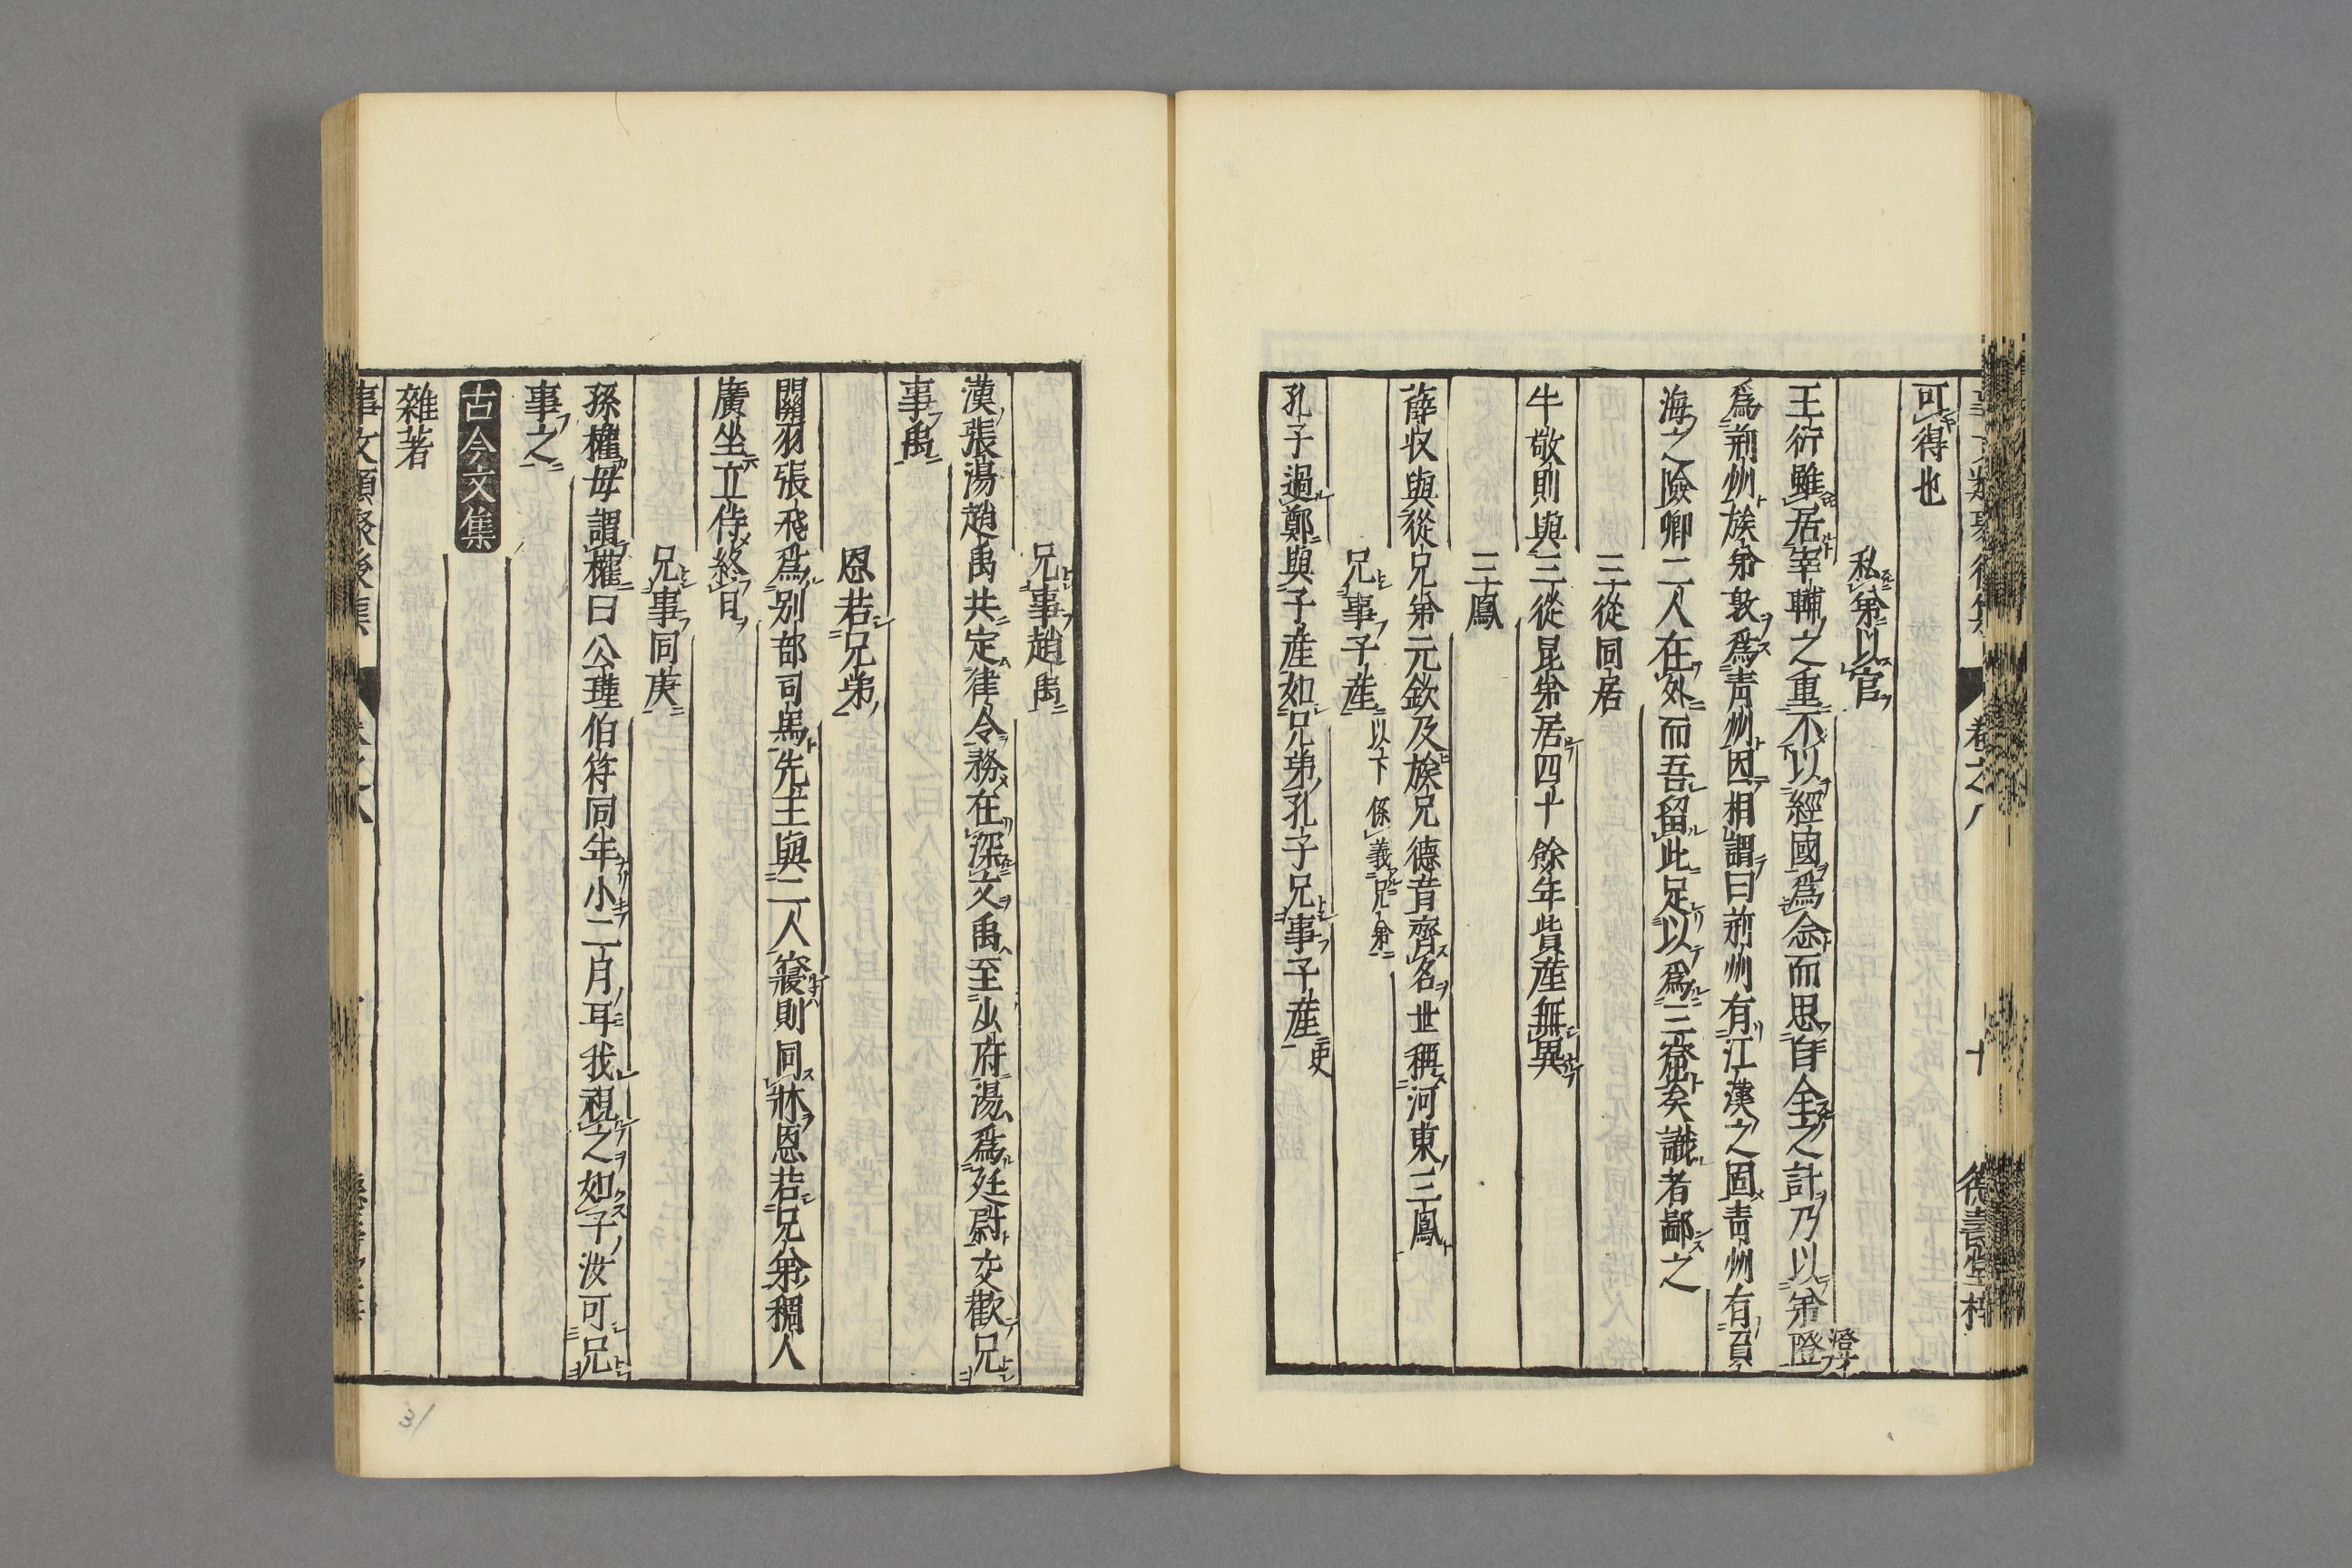 可得也
私弟以官
王衍雖居宰輔之重不以經國爲念而思自全之計乃以弟澄
爲荊州族弟敦爲青州因相謂曰荊州有江漢之固青州有負
海之險卿二人在外而吾留此足以爲三窟矣識者鄙之
三從同居
牛敬則與三從昆弟居四十餘年貲産無異
三鳳
薛收與從兄弟元欽及族兄德音齊名世稱河東三鳳
兄事子産 以下係義兄弟
孔子過鄭與子産如兄弟孔子兄事子産 史
兄事趙禹
漢張湯趙禹共定律令務在深文禹至少府湯爲廷尉交歡兄
事禹
恩若兄弟
關羽張飛爲別部司馬先主與二人寢則同牀恩若兄弟稠人
廣坐立侍終日
兄事同庚
孫權母謂權曰公瑾伯符同年小一月耳我視之如子汝可兄
事之
古今文集
雜著